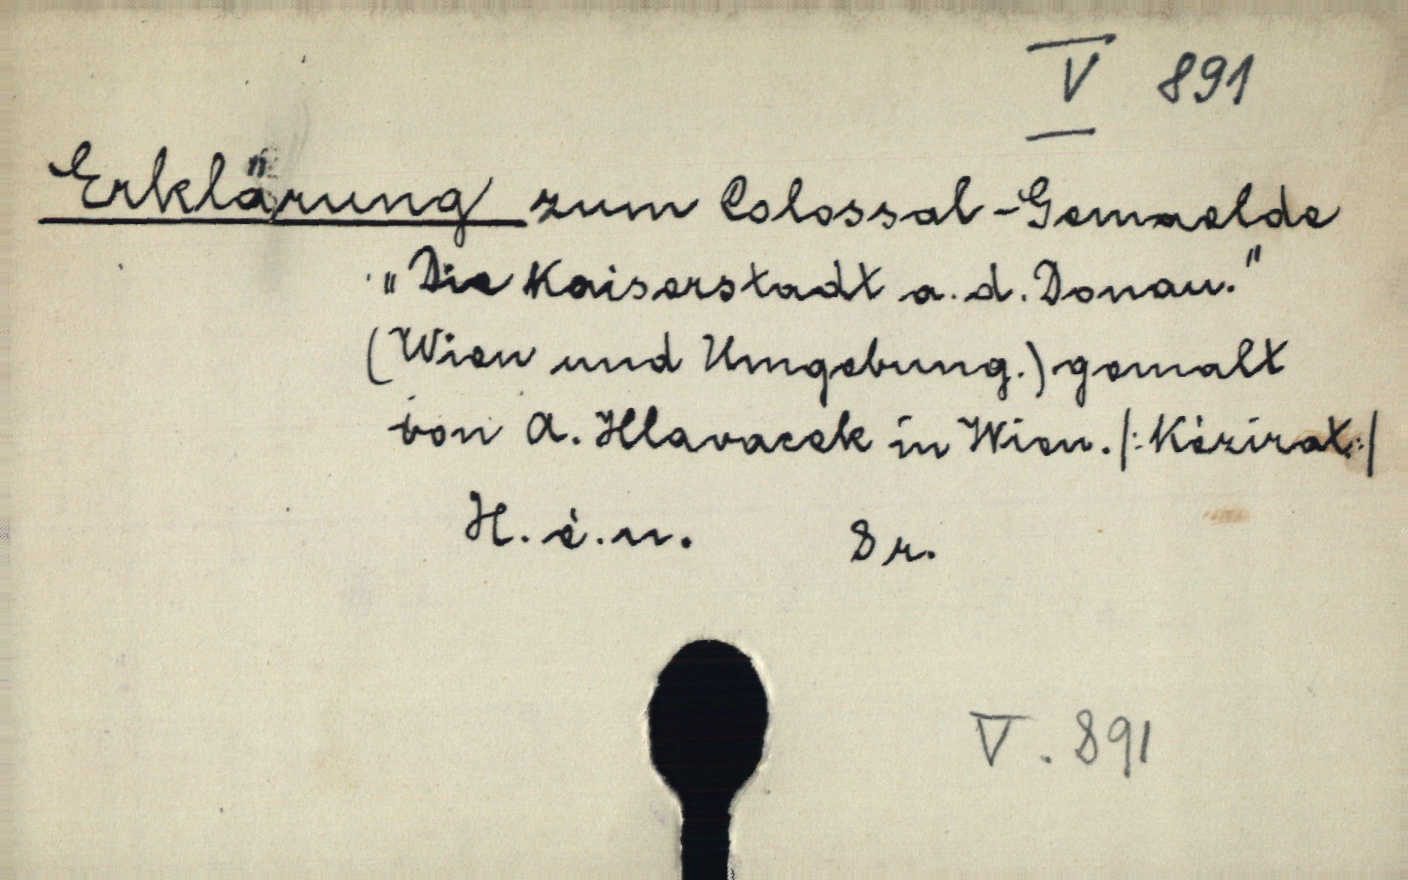 V 891
Erklärung zum Colossal-Gemaelde
„Die Kaiserstadt a. d. Donau."
(Wien und Umgebung.) gemalt
von A. Hlavacek in Wien. /:Kézirat:/
H. é. n. 8 r.
V. 891